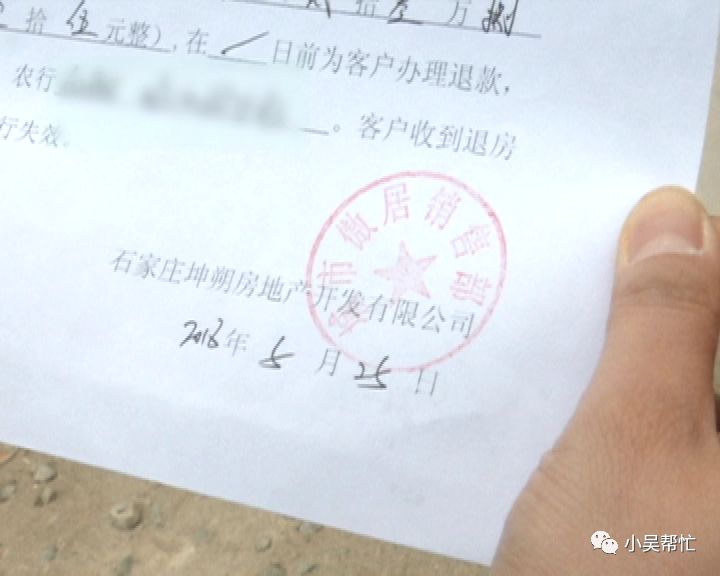 拾 万 捌
拾 伍 元整），在 / 日前为客户办理退款，
农行 。客户收到退房
行失效。
石家庄坤朔房地产开发有限公司
2018年 5 月 25 日
市微居销售部
小吴帮忙